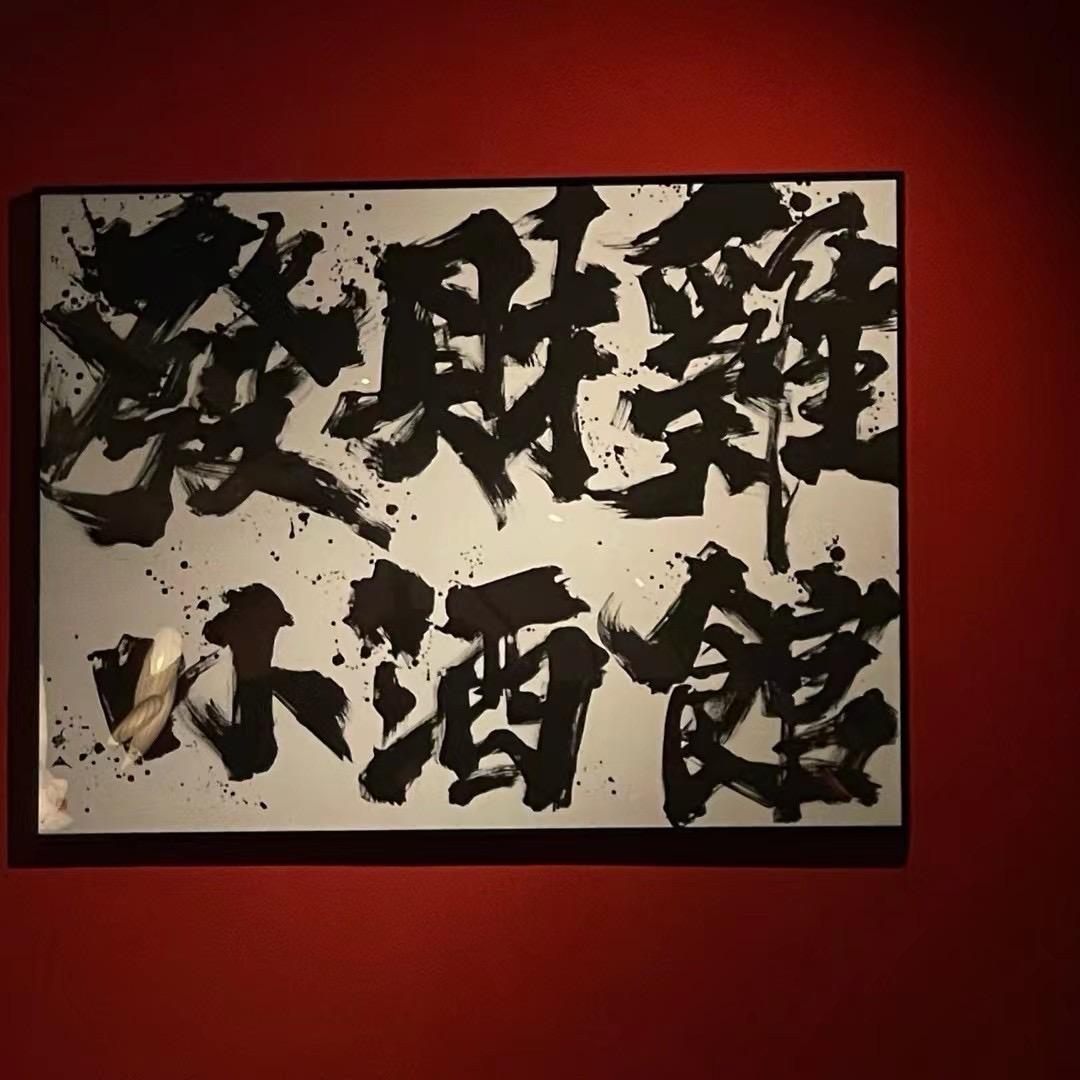 發財雞
小酒館